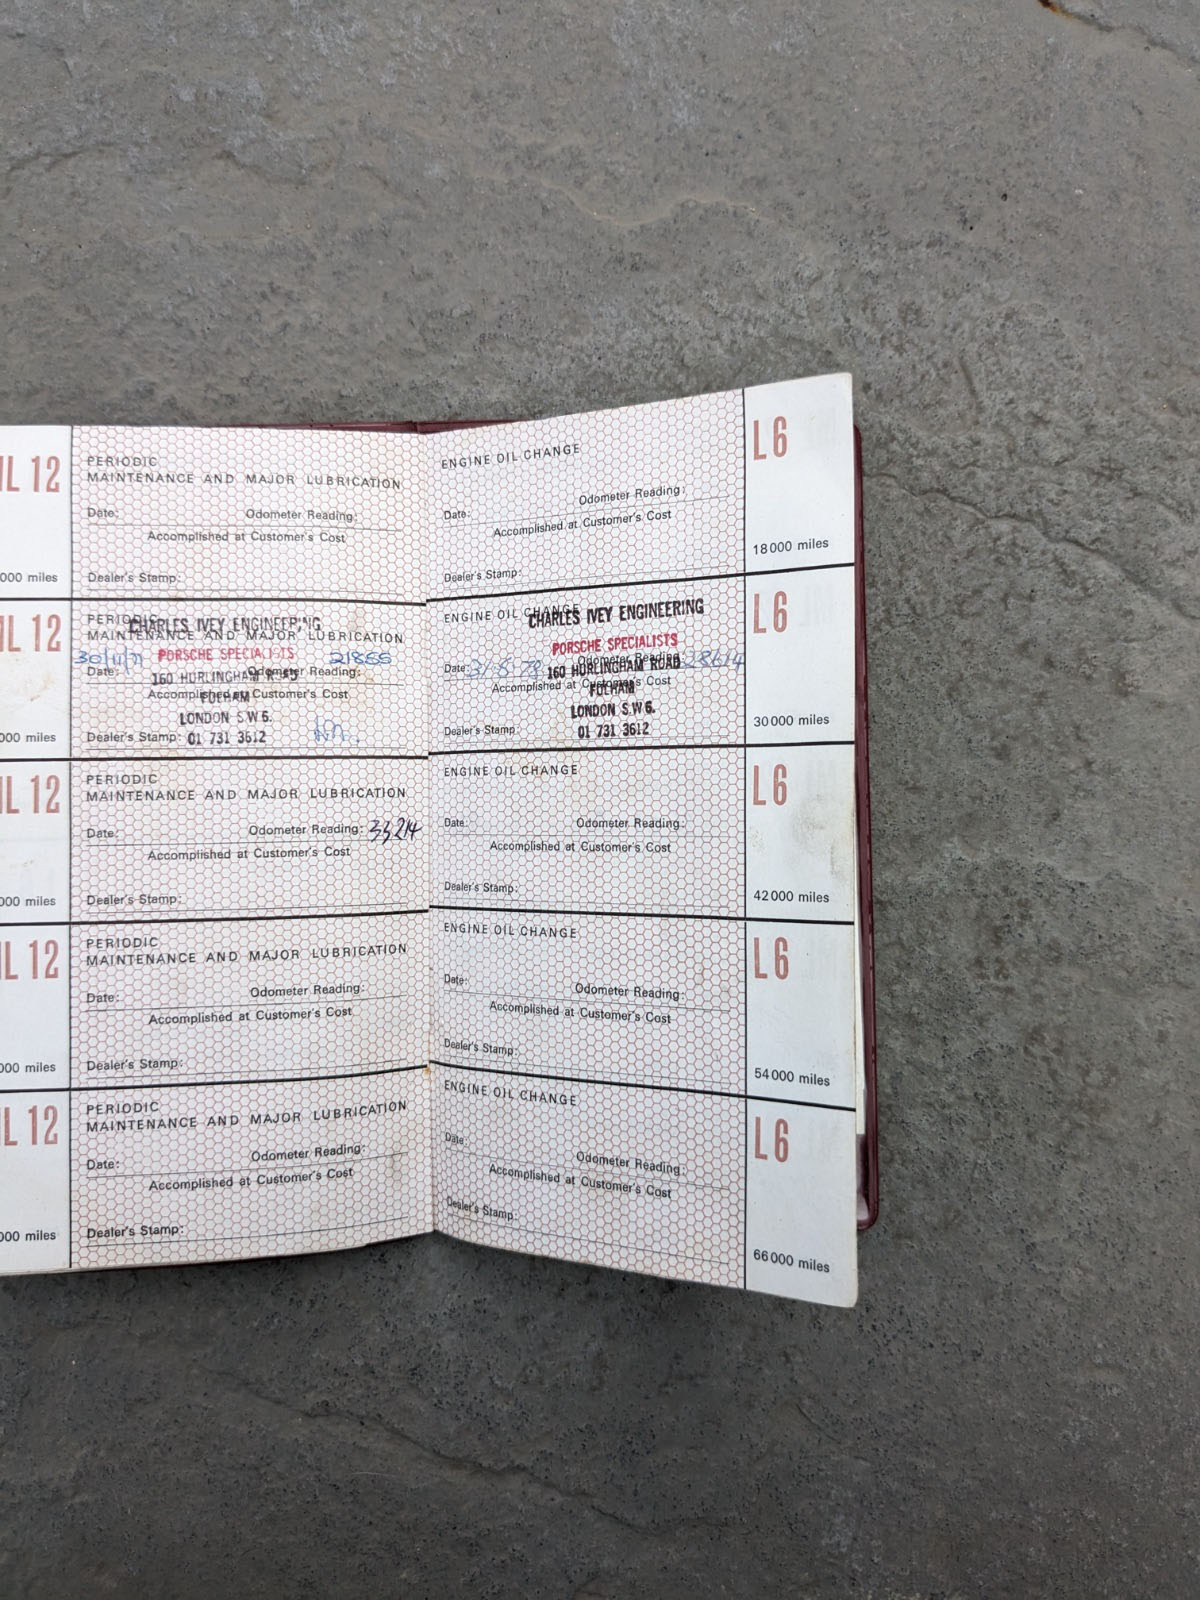 IL 12
PERIODIC
MAINTENANCE AND MAJOR LUBRICATION
Date:
Odometer Reading:
Accomplished at Customer's Cost
000 miles
Dealer's Stamp:
ENGINE OIL CHANGE
Odometer Reading:
Date:
Accomplished at Customer's Cost
Dealer's Stamp:
L6
18000 miles
IL 12
PERIODIC
CHARLES IVEY ENGINEERING
MAINTENANCE AND MAJOR LUBRICATION
PORSCHE SPECIALISTS
21855
Date:
Odometer Reading:
160 HURLINGHAM ROAD
Accomplished at Customer's Cost
FULHAM
LONDON S.W6.
000 miles
Dealer's Stamp: 01 731 3612
ENGINE OIL CHANGE
CHARLES IVEY ENGINEERING
PORSCHE SPECIALISTS
Date: 31.5.78 Odometer Reading: 28614
160 HURLINGHAM ROAD
Accomplished at Customer's Cost
FULHAM
LONDON S.W6.
Dealer's Stamp: 01 731 3612
L6
30000 miles
IL 12
PERIODIC
MAINTENANCE AND MAJOR LUBRICATION
Date:
Odometer Reading: 33214
Accomplished at Customer's Cost
000 miles
Dealer's Stamp:
ENGINE OIL CHANGE
Date:
Odometer Reading:
Accomplished at Customer's Cost
Dealer's Stamp:
L6
42000 miles
IL 12
PERIODIC
MAINTENANCE AND MAJOR LUBRICATION
Date:
Odometer Reading:
Accomplished at Customer's Cost
000 miles
Dealer's Stamp:
ENGINE OIL CHANGE
Date:
Odometer Reading:
Accomplished at Customer's Cost
Dealer's Stamp:
L6
54000 miles
IL 12
PERIODIC
MAINTENANCE AND MAJOR LUBRICATION
Date:
Odometer Reading:
Accomplished at Customer's Cost
000 miles
Dealer's Stamp:
ENGINE OIL CHANGE
Date:
Odometer Reading:
Accomplished at Customer's Cost
Dealer's Stamp:
L6
66000 miles